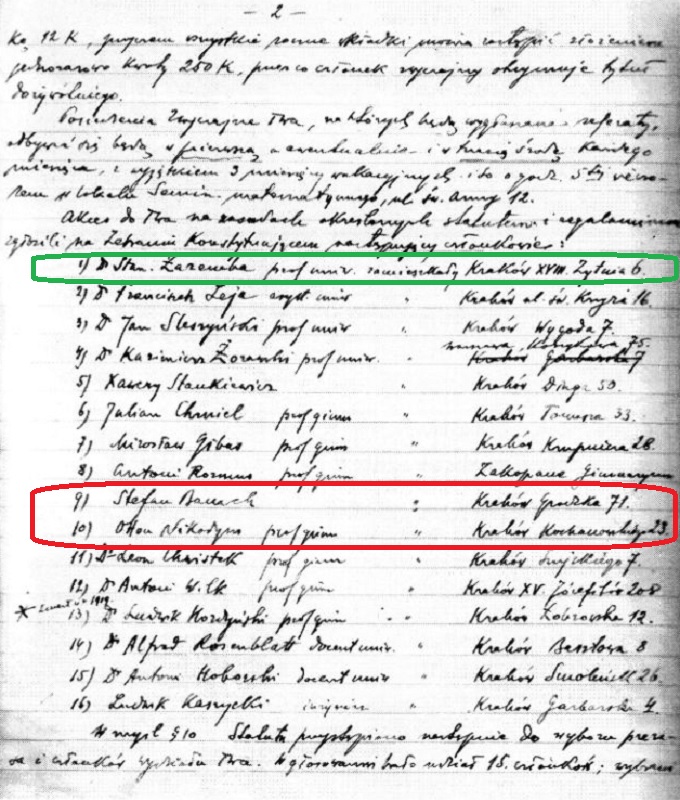 - 2 -
Kę 12 K, wszystkie roczne wkładki można zastąpić złożeniem
jednorazowo kwoty 250 K, przez co członek zwyczajny otrzymuje tytuł
dożywotniego.
Posiedzenia zwyczajne Twa, na których będą wygłaszane referaty,
odbywać się będą w pierwszą a ewentualnie i w trzecią środę każdego
miesiąca, z wyjątkiem 3 miesięcy wakacyjnych i to o godz. 5tej wieczo-
rem w lokalu Semin. matematycznego, ul. św. Anny 12.
Akces do Twa na zasadach określonych statutem i regulaminem
zgłosili na Zebraniu Konstytuującem następujący członkowie:
1) Dr Stan. Zaremba prof uniw. zamieszkały Kraków XVIII. Żytnia 6.
2) Dr Franciszek Leja asyst. uniw " Kraków ul. św. Krzyża 16.
3) Dr Jan Sleszyński prof uniw. " Kraków Wygoda 7.
4) Dr Kazimierz Żorawski prof uniw. " Kraków Garbarska 7 75.
5) Ksawery Stankiewicz " Kraków Długa 50.
6) Julian Chmiel prof gimn " Kraków Tomasza 33.
7) Mirosław Gibas prof gimn " Kraków Krupnicza 28.
8) Antoni prof gimn " Zakopane Gimnazyum
9) Stefan Banach " Kraków Grodzka 71.
10) Otton Nikodym prof gimn " Kraków Kochanowskiego 23.
11) Dr Leon Chwistek prof gimn " Kraków 7.
12) Dr Antoni Wilk prof gimn " Kraków XV. Józefitów 208
13) Dr Ludwik prof gimn " Kraków Łobzowska 12.
14) Dr Alfred Rosenblatt docent uniw. " Kraków 8
15) Dr Antoni Hoborski docent uniw " Kraków Smoleńsk 26.
16) Ludwik " Kraków Garbarska 4.
W myśl §10 Statutu przystąpiono następnie do wyboru preze-
sa i członków wydziału Twa. W głosowaniu brało udział 15. członków; wybrani